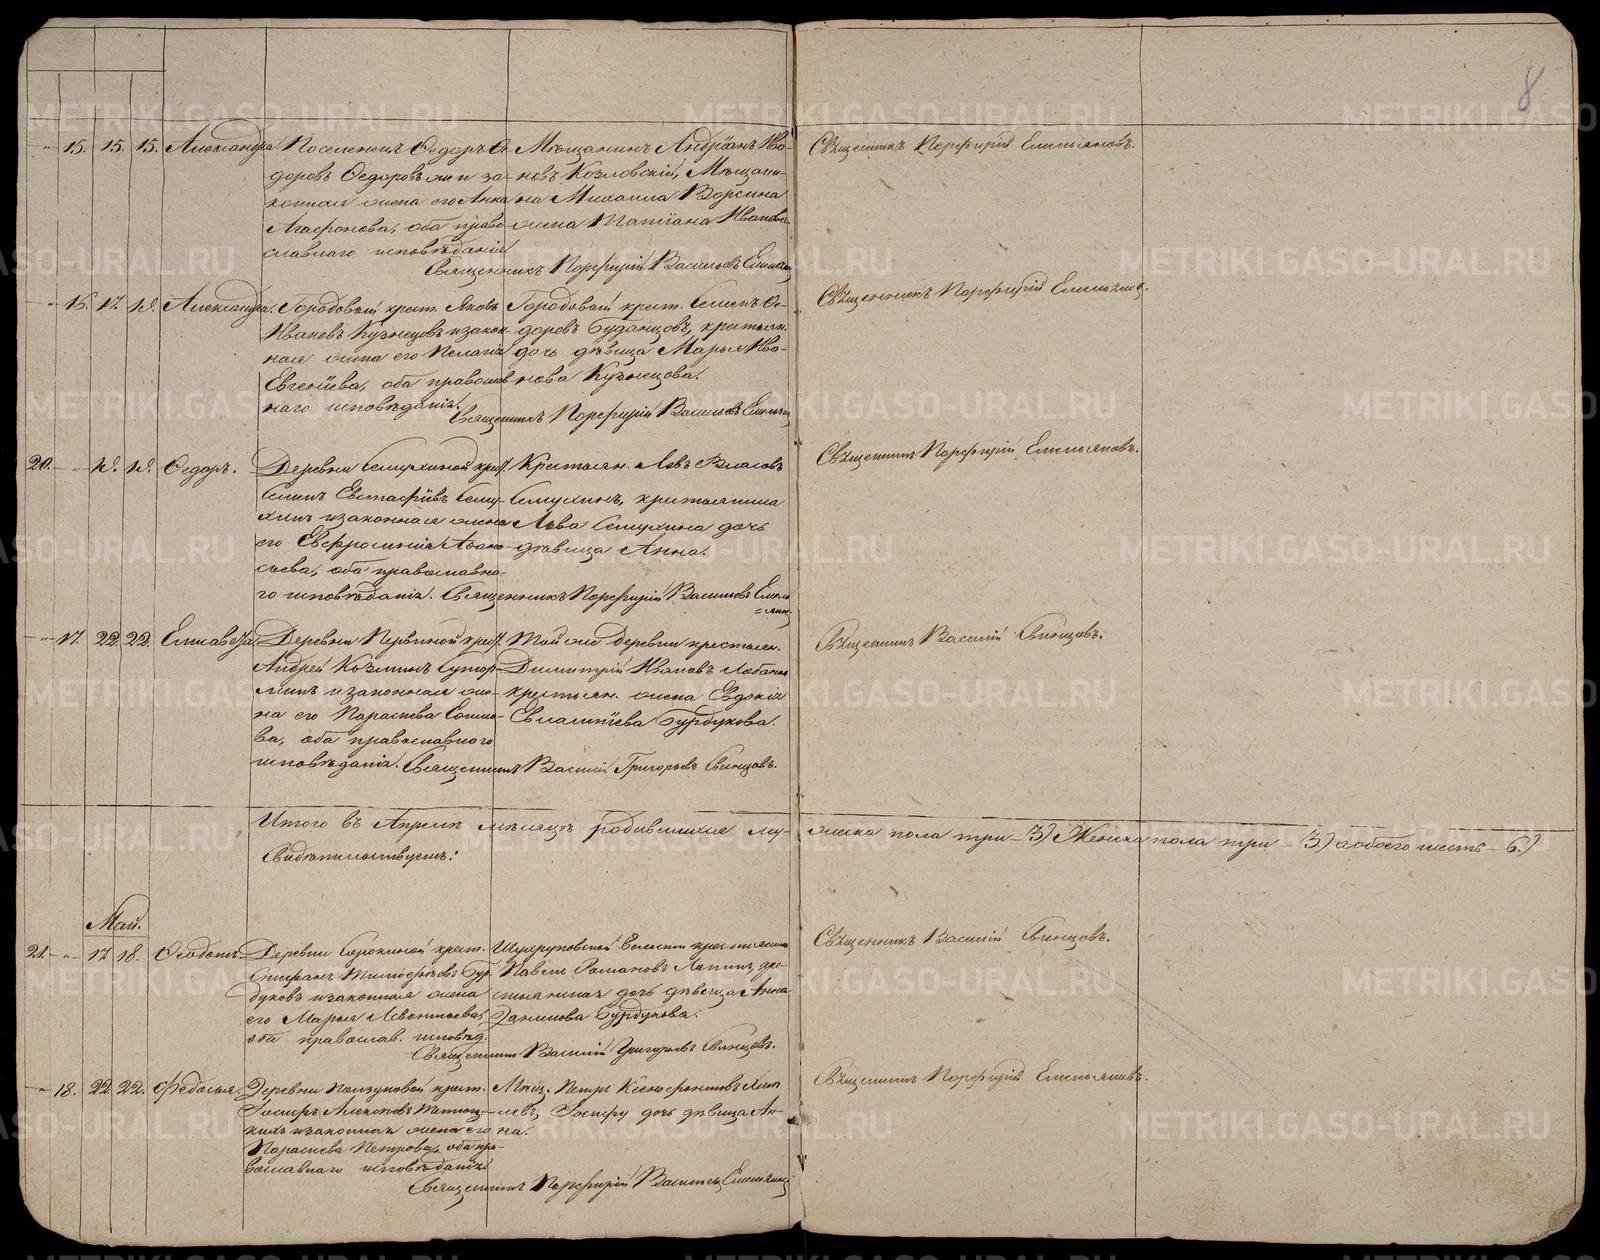 8
15. 15. 15. Александра
Поселенецъ Ѳедоръ Ѳе-
доровъ Ѳедоровъ и за-
конная жена его Анна
Агафонова, оба право-
славнаго исповѣданія
Мѣщанинъ Андріанъ Ива-
новъ Козловскій, Мѣщани-
на Михаила Ворсина
жена Татіана Иванова
Священникъ Порфирій Васильевъ Емельяновъ
Священникъ Порфирій Емельяновъ.
16. 17. 18. Александра.
Городовый крест. Яковъ
Ивановъ Кузнецовъ и закон-
ная жена его Пелагія
Евгеніева, оба православ-
наго исповѣданія.
Городовый крест. Семенъ Ѳе-
доровъ Буданцовъ, крестьян.
дочь дѣвица Марья Ива-
нова Кузнецова.
Священникъ Порфирій Васильевъ Емельян
Священникъ Порфирій Емельянов.
20. 18. 18. Ѳедоръ.
Деревни Семухиной крест.
Семенъ Евстафіевъ Сему-
хинъ и законная жена
его Евфросинія Аѳана-
сьева, оба православна-
го исповѣданія.
Крестьян. Левъ Власовъ
Семухинъ, крестьянина
Льва Семухина дочь
дѣвица Анна.
Священникъ Порфирій Васильевъ Емель
янов
Священникъ Порфирій Емельяновъ.
17. 22. 22. Елисавета
Деревни Первиной крест.
Андрей Козминъ Сутор-
минъ и законная же-
на его Параскева Козми-
ва, оба православнаго
исповѣданія.
Той же деревни крестьян.
Димитрій Ивановъ Лобанов
крестьян. жена Евдокія
Евлампіева Бурдукова.
Священникъ Василій Григорьевъ Свинцовъ.
Священникъ Василій Свинцовъ.
Итого въ Апрелѣ мѣсяцѣ родившихся му- жеска пола три – 3) Женска пола три – 3.) а обоего шесть – 6.)
Свидѣтельствуемъ:
Май.
21. 17 18. Ѳеодотъ
Деревни Сорокиной крест.
Стефанъ Тимофѣевъ Бур-
дуковъ и законная жена
его Марья Леонтьева,
оба православ. исповѣд.
Шухруповской Волости крестьянинъ
Павелъ Романовъ Лапинъ, кре-
стьянина дочь дѣвица Анна
Данилова Бурдукова.
Священникъ Василій Григорьевъ Свинцовъ.
Священникъ Василій Свинцовъ.
18. 22. 22. Федосья.
Деревни Ползуновой крест.
Іосифъ Алексѣевъ
законная жена его
Параскева Петрова, оба пра-
вославнаго исповѣданія
Мѣщ. Петръ Ксенофонтовъ
Іосифу дочь дѣвица Ан-
на.
Священникъ Порфирій Васильевъ Емельянов
Священникъ Порфирій Емельяновъ.
METRIKI.GASO-URAL.RU